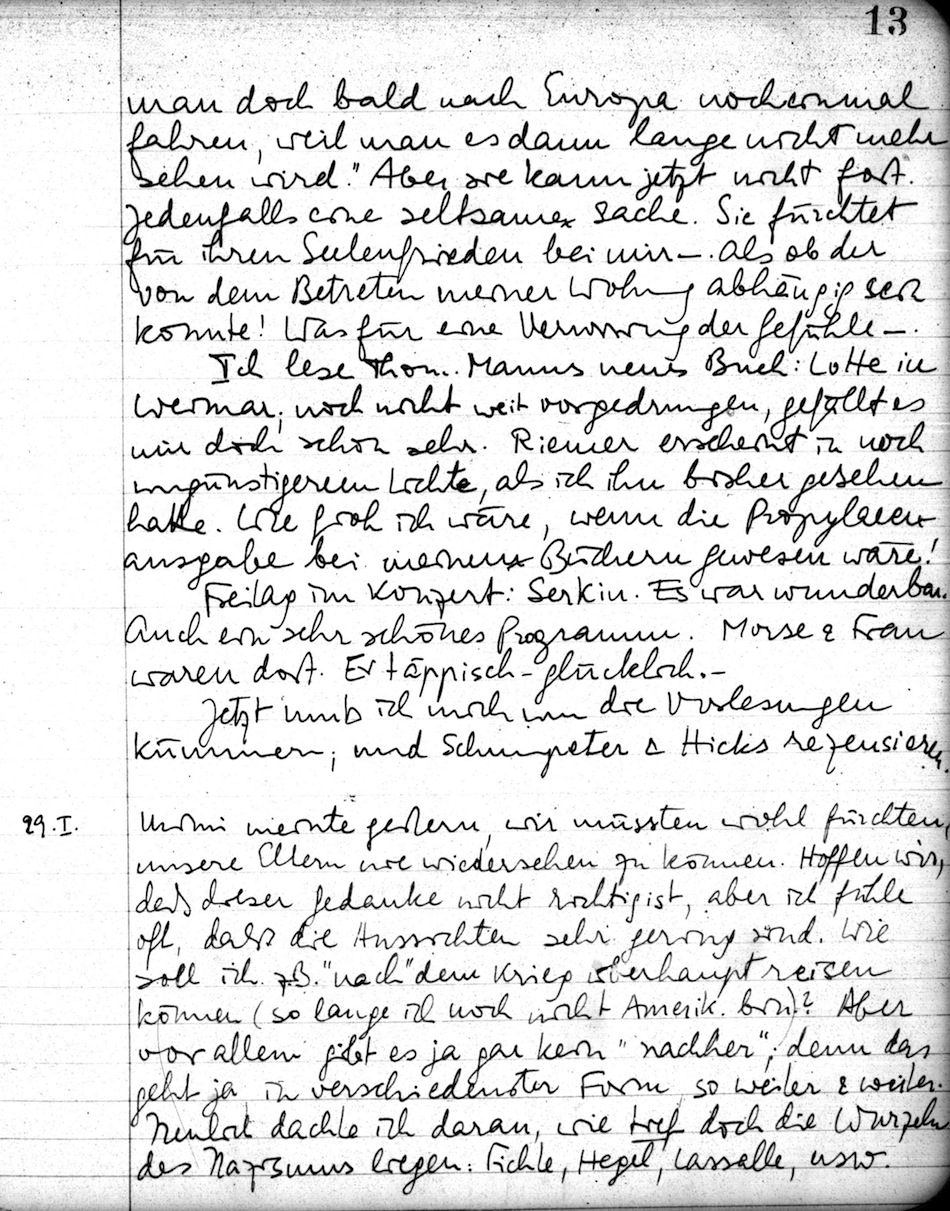 13
man doch bald nach Europa nocheinmal
fahren, weil man es dann lange nicht mehr
sehen wird." Aber sie kann jetzt nicht fort.
Jedenfalls eine seltsame Sache. Sie fürchtet
für ihren Seelenfrieden bei mir –. Als ob der
von dem Betreten meiner Wohnung abhängig sein
konnte! Was für eine Verwirrung der Gefühle –.
Ich lese Thom. Manns neues Buch: Lotte in
Weimar; noch nicht weit vorgedrungen, gefällt es
mir doch schon sehr. Riemer erscheint in noch
ungünstigerem Lichte, als ich ihn bisher gesehen
hatte. Wie froh ich wäre, wenn die Propylaeen
ausgabe bei meinen Büchern gewesen wäre!
Freitag im Konzert: Serkin. Es war wunderbar.
Auch ein sehr schönes Programm. Morse & Frau
waren dort. Er täppisch-glücklich.–
Jetzt muß ich mich um die Vorlesungen
kümmern; und Schumpeter & Hicks rezensieren.
29.I. meinte gestern, wir müssten wohl fürchten,
unsere Eltern nie wiedersehen zu können. Hoffen wir,
daß dieser Gedanke nicht richtig ist, aber ich fühle
oft, dass die Aussichten sehr gering sind. Wie
soll ich z.B. "nach" dem Krieg überhaupt reisen
können (so lange ich noch nicht Amerik. bin)? Aber
vor allem gibt es ja gar kein "nachher"; denn das
geht ja in verschiedenster Form so weiter & weiter.
Neulich dachte ich daran, wie tief doch die Wurzeln
des Nazismus liegen: Fichte, Hegel, Lassalle, usw.